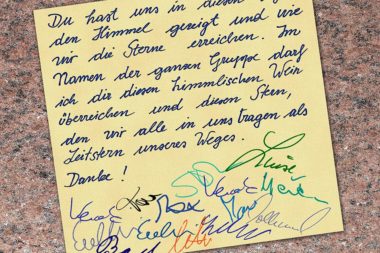 Du hast uns in diesen
den Himmel gezeigt und wie
wir die Sterne erreichen. Im
Namen der ganzen Gruppe darf
ich dir diesen himmlischen Wein
überreichen und diesen Stern,
den wir alle in uns tragen als
Leitstern unseres Weges.
Danke!
Luise
Max